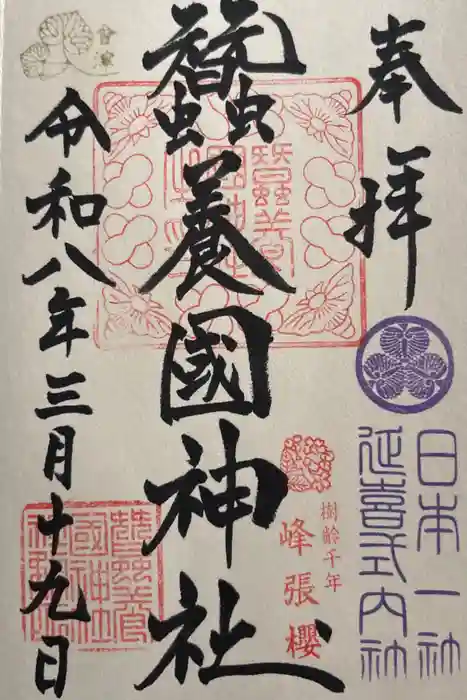 奉拝
日本一社
延喜式内社
蠶養國神社
樹齢千年
峰張櫻
令和八年三月十九日
會津
蠶養
國神社